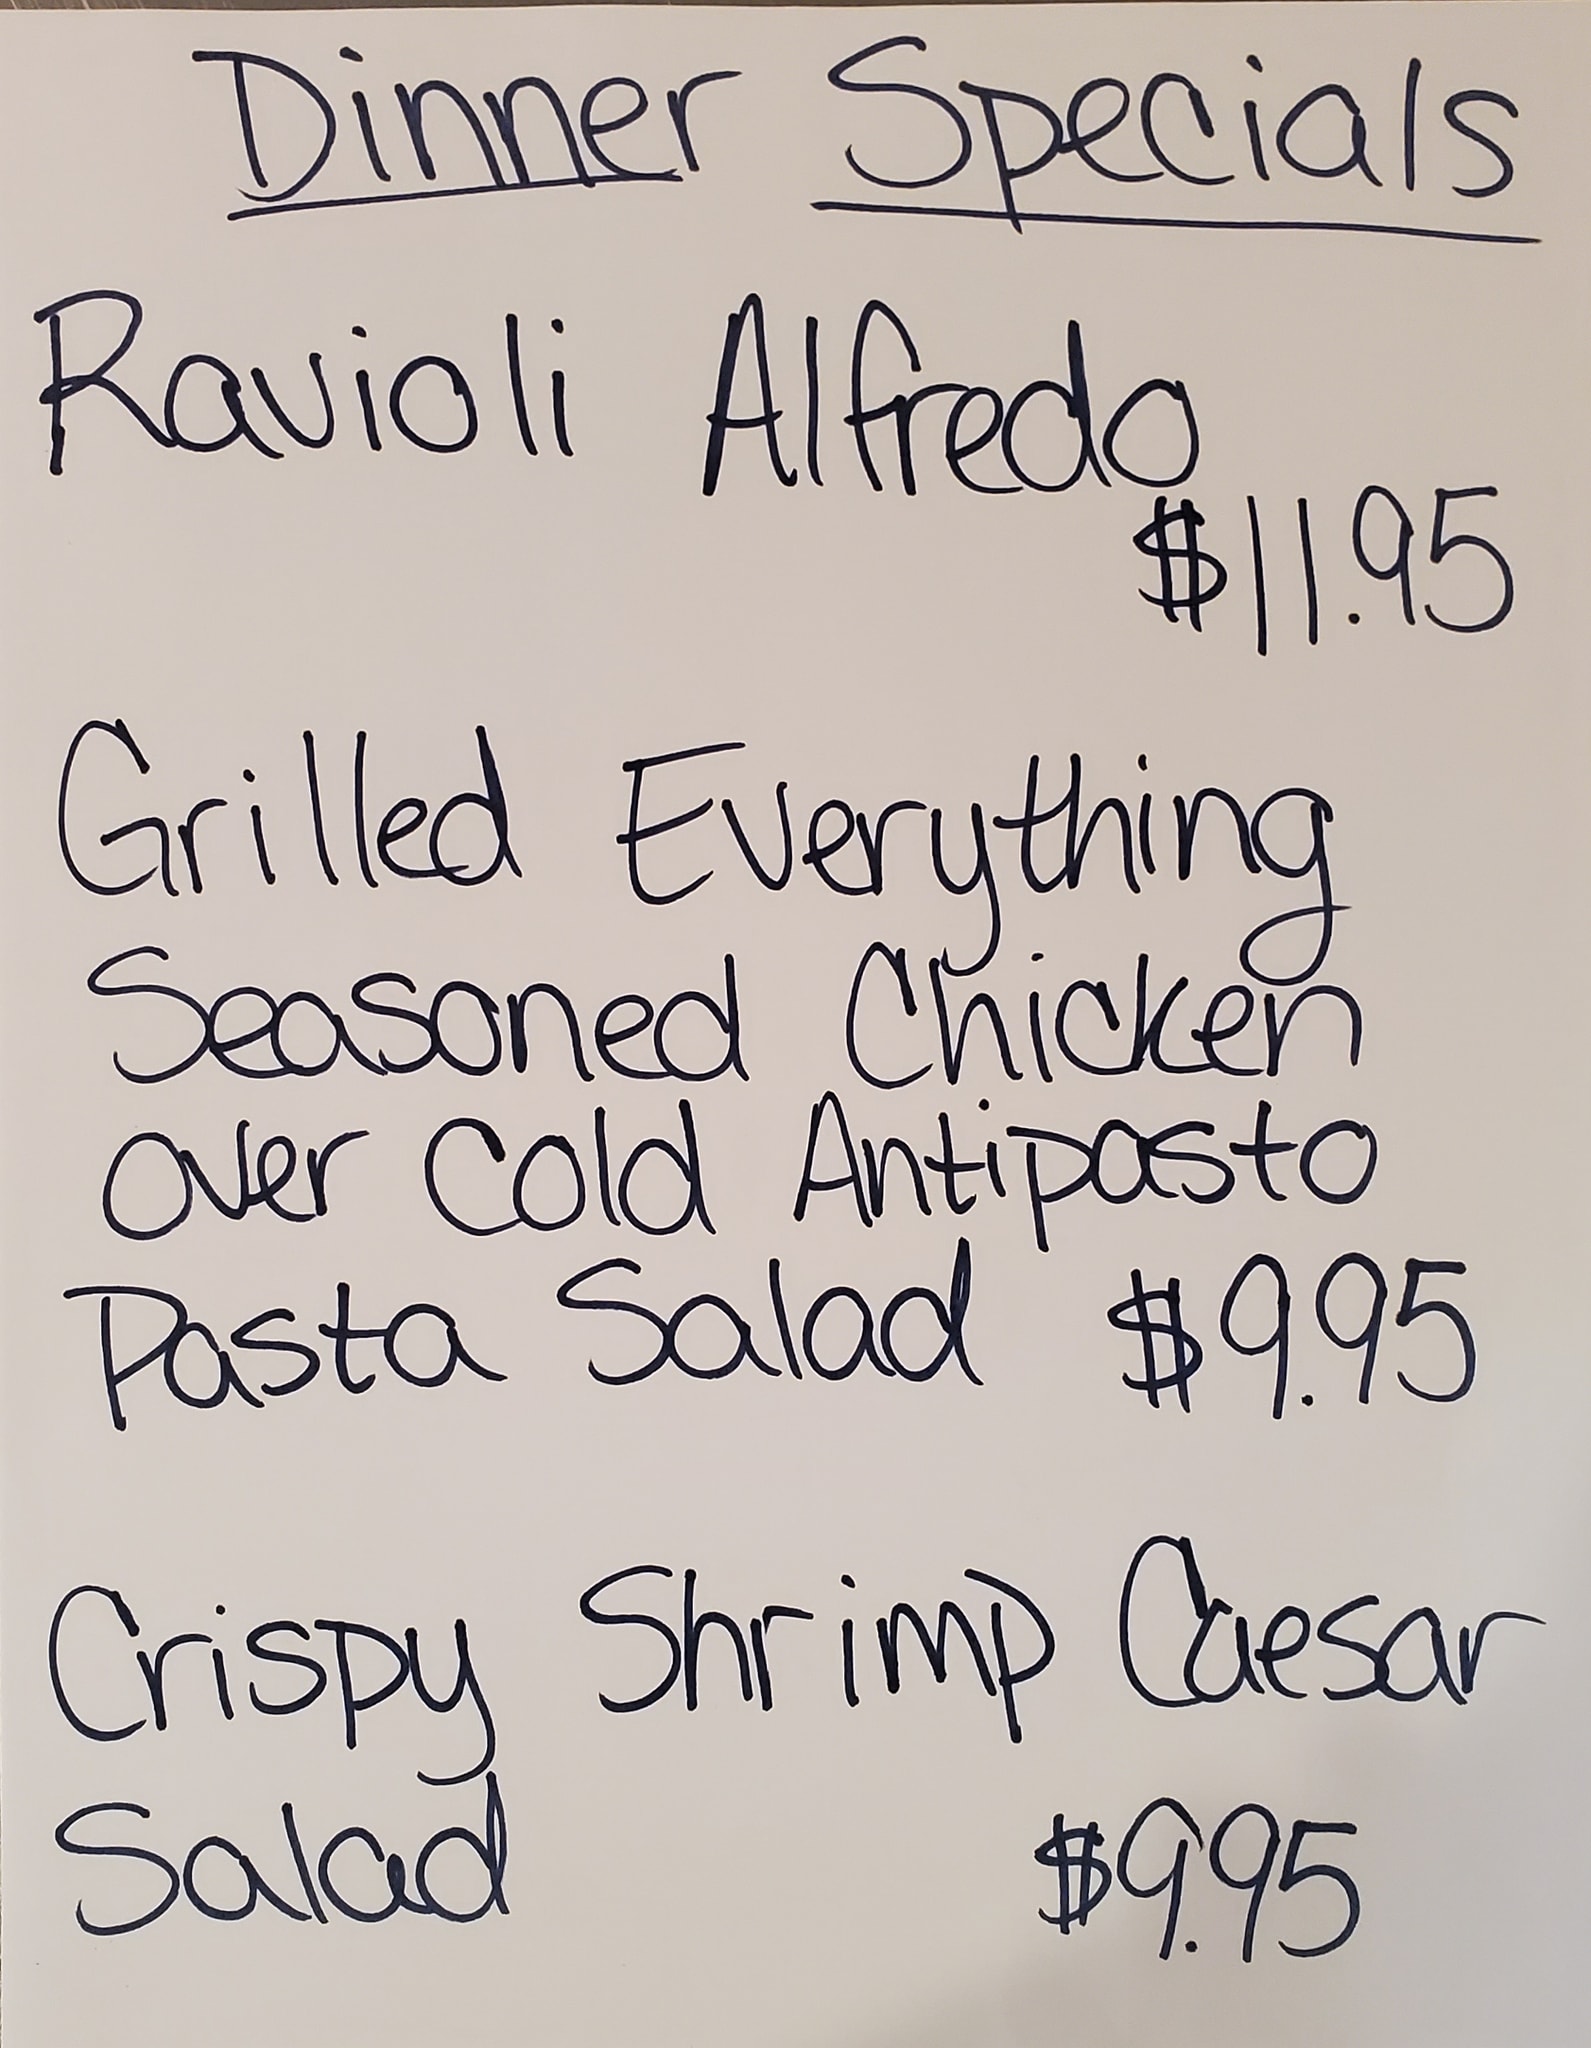 Dinner Specials
Ravioli Alfredo
$11.95
Grilled Everything
Seasoned Chicken
over Cold Antipasto
Pasta Salad $9.95
Crispy Shrimp Caesar
Salad $9.95